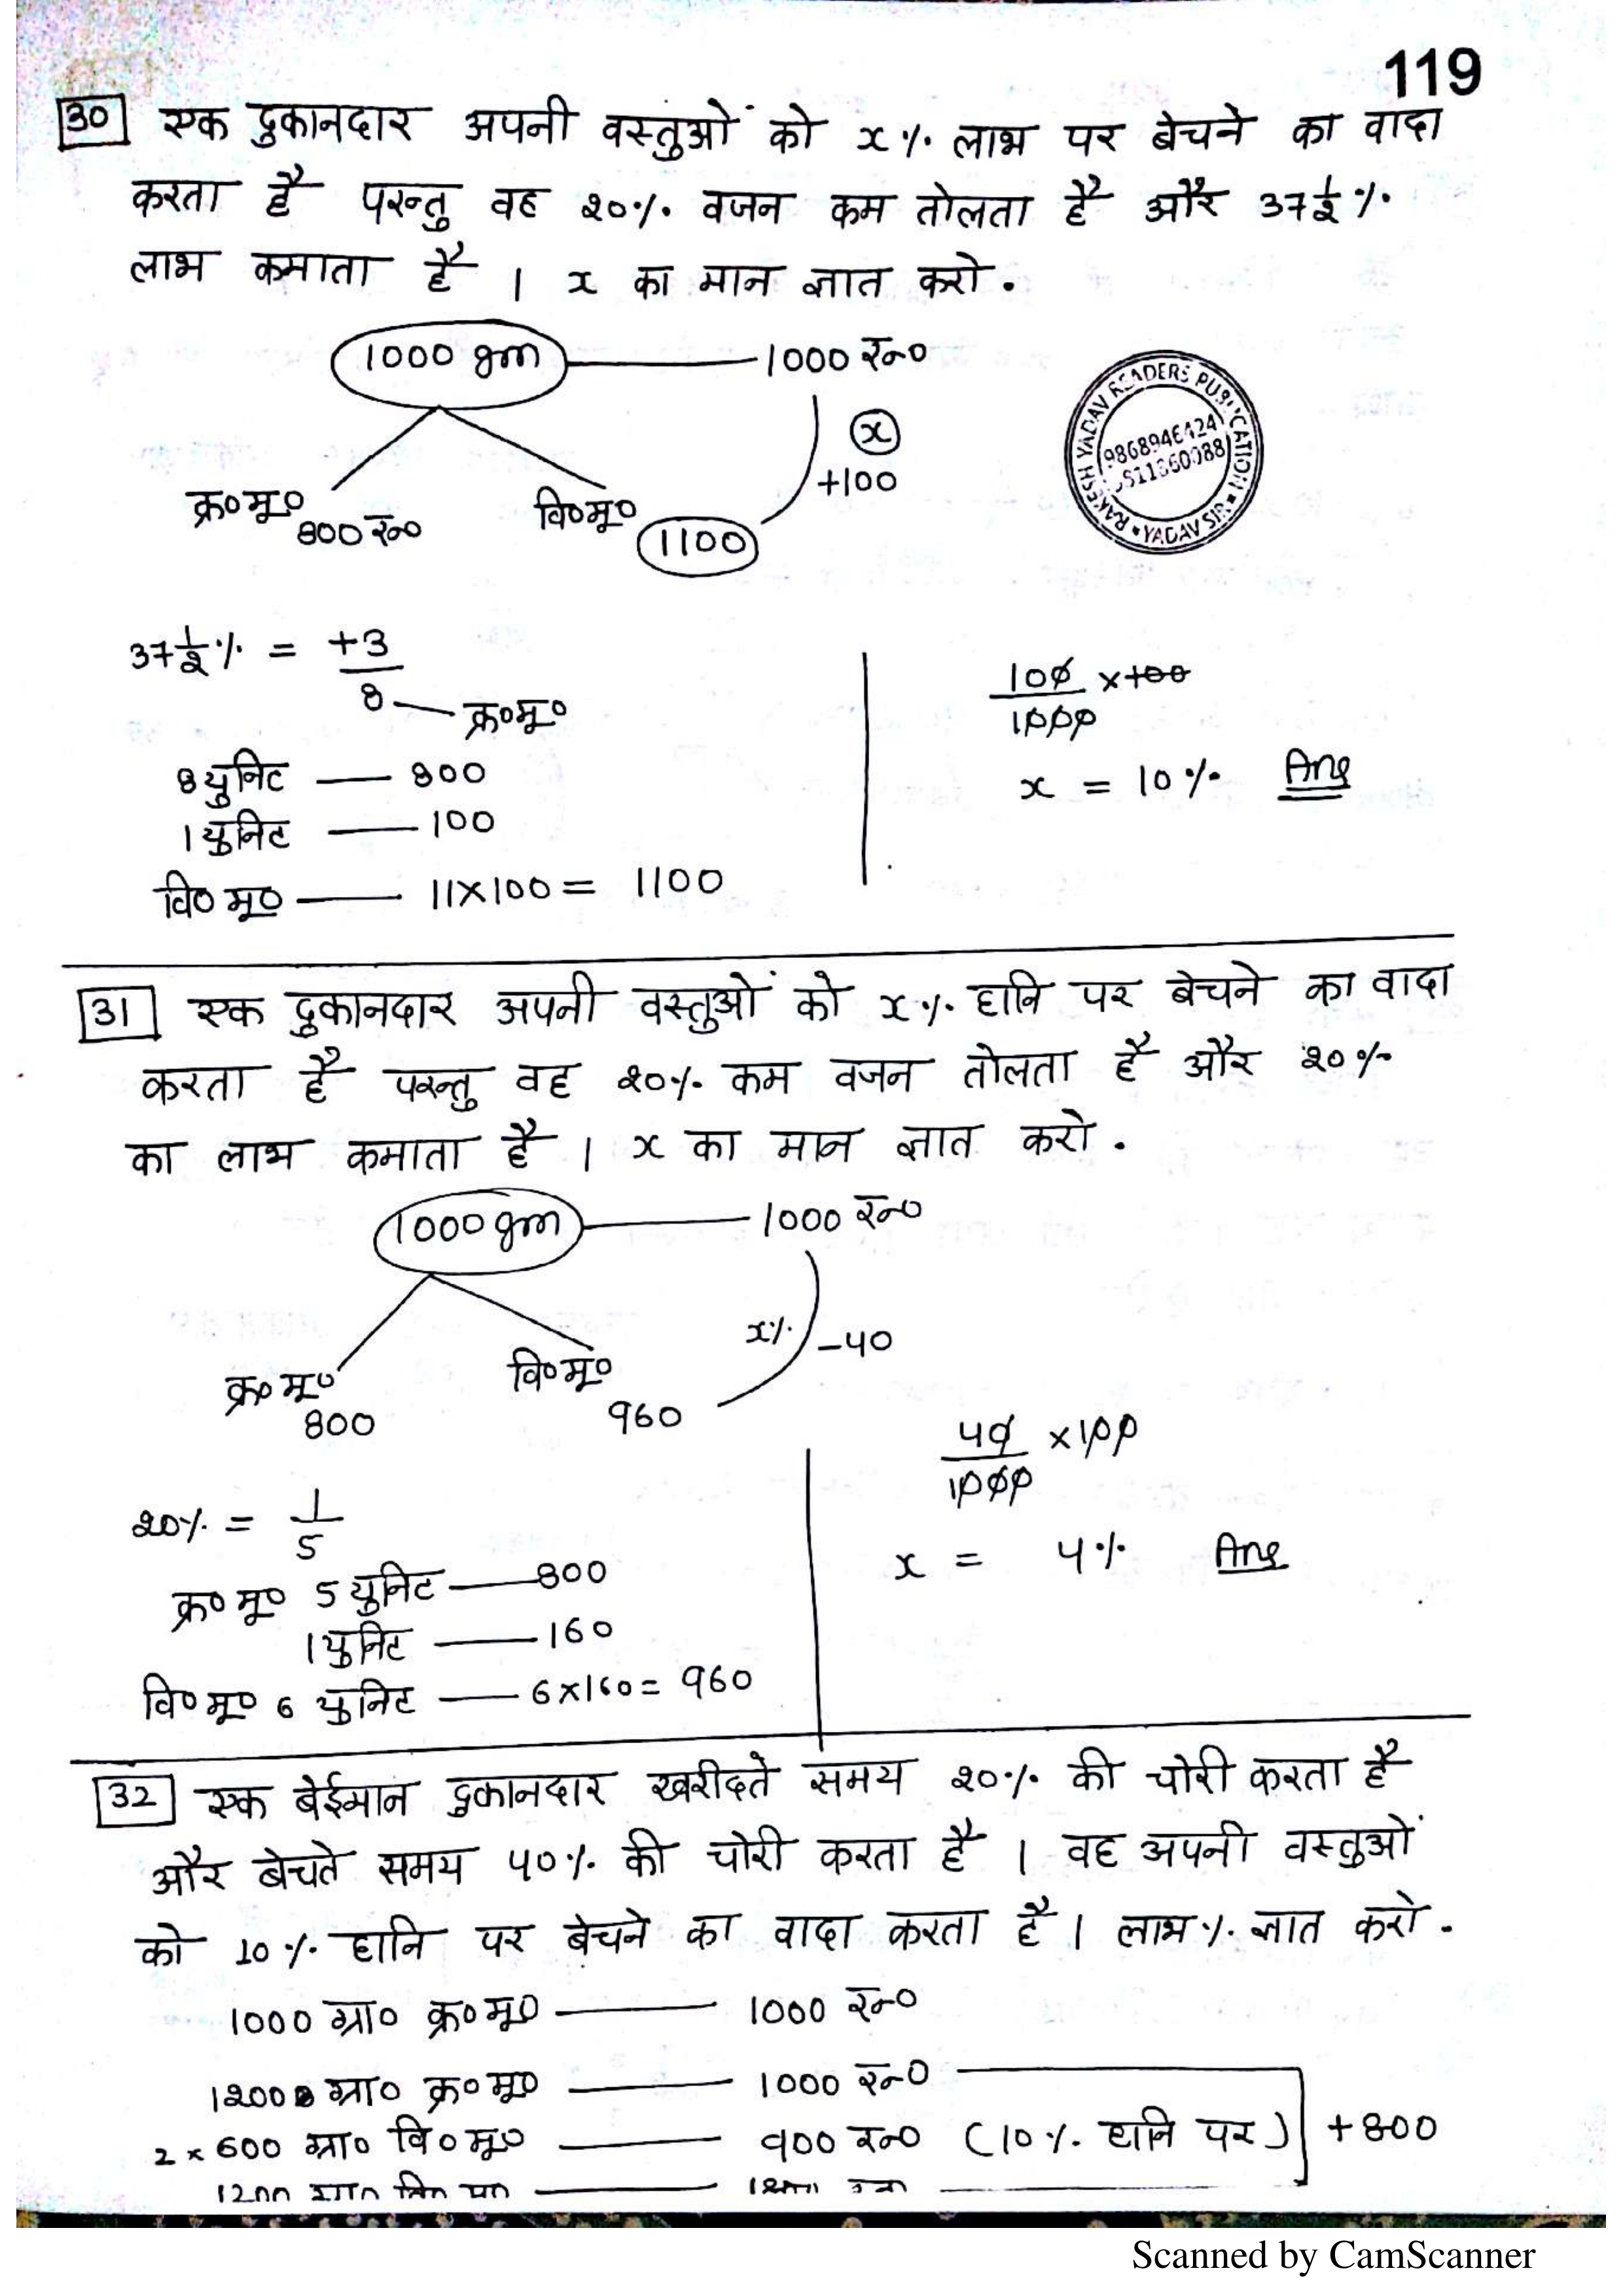 119
30 एक दुकानदार अपनी वस्तुओं को x% लाभ पर बेचने का वादा
करता है परन्तु वह 20% वजन कम तोलता है और 37½%
लाभ कमाता है । x का मान ज्ञात करो .
1000 gm 1000 रु०
x
+100
क्र०मू० 800 रु० वि०मू० 1100
READERS PUBLICATION RAKESH YADAV YADAV SIR
37½% = +3/8 क्र०मू०
8 युनिट — 800
1 युनिट — 100
वि० मू० — 11×100 = 1100
100/1000 ×100
x = 10% Ans
31 एक दुकानदार अपनी वस्तुओं को x% हानि पर बेचने का वादा
करता है परन्तु वह 20% कम वजन तोलता है और 20%
का लाभ कमाता है । x का मान ज्ञात करो .
1000 gm 1000 रु०
x% -40
क्र० मू० 800 वि०मू० 960
20% = 1/5
क्र० मू० 5 युनिट — 800
1 युनिट — 160
वि० मू० 6 युनिट — 6×160 = 960
40/1000 ×100
x = 4% Ans
32 एक बेईमान दुकानदार खरीदते समय 20% की चोरी करता है
और बेचते समय 40% की चोरी करता है । वह अपनी वस्तुओं
को 10% हानि पर बेचने का वादा करता है । लाभ% ज्ञात करो .
1000 ग्रा० क्र० मू० — 1000 रु०
1200 ग्रा० क्र० मू० — 1000 रु०
2 × 600 ग्रा० वि० मू० — 900 रु० (10% हानि पर) +800
Scanned by CamScanner